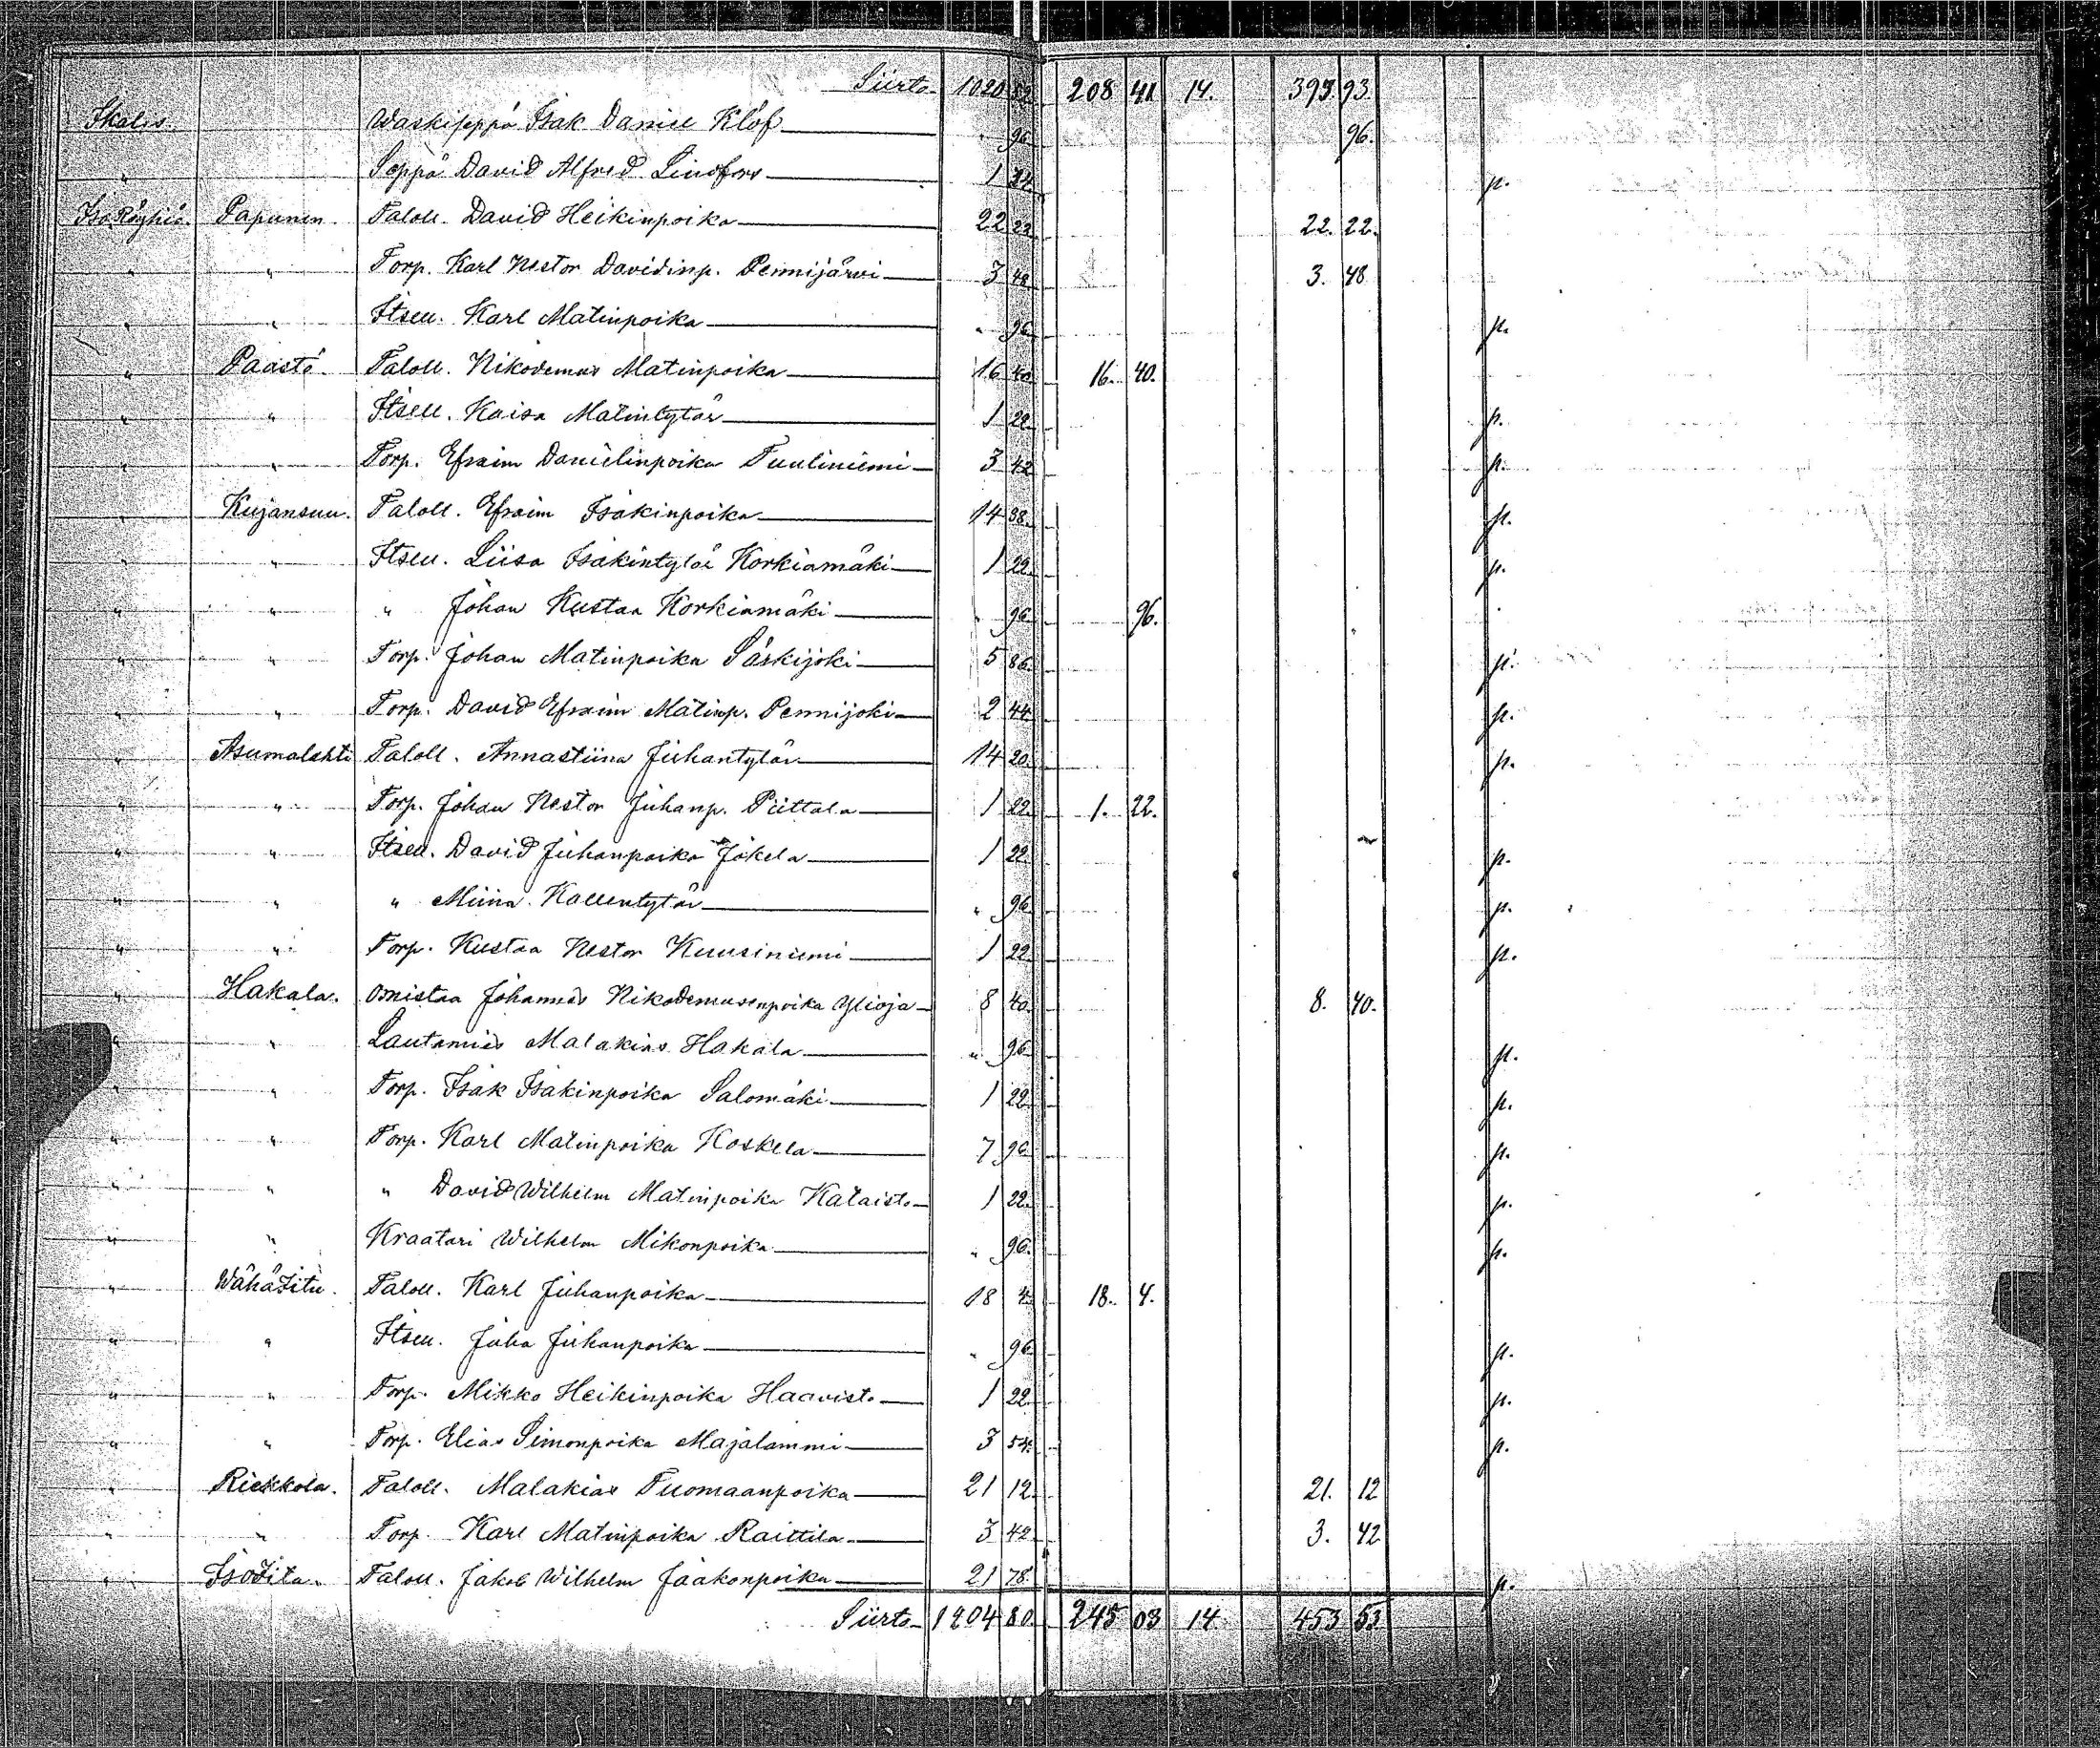 Siirto 1020 82 208 41 14. 393. 93.
Ikalis Waskiseppä Isak Daniel Klöf " 96 96.
" Seppä David Alfred Lindfors 1 24 p.
Iso Röyhiö. Papunen. Taloll. David Heikinpoika 22 22 22. 22.
" " Torp. Karl Nestor Davidinp. Pennijärvi 3 48 3. 48
" " Itsell. Karl Matinpoika " 96 p.
" Paasto. Taloll. Nikodemus Matinpoika 16 40 16. 40.
" " Itsell. Kaisa Matintytär 1 22 p.
" " Torp. Efraim Danielinpoika Tuuliniemi 3 42 p.
" Kujansuu. Taloll. Efraim Isakinpoika 14 38 p.
" " Itsell. Liisa Isakintytär Korkiamäki 1 22 p.
" " " Johan Kustaa Korkiamäki " 96 96.
" " Torp. Johan Matinpoika Säskijoki 5 86 p.
" " Torp. David Efraim Matinp. Pennijoki 2 44 p.
" Asumalahti Taloll. Annastiina Juhantytär 14 20 p.
" " Torp. Johan Nestor Juhanp. Piittala 1 22 1. 22.
" " Itsell. David Juhanpoika Jokela 1 22 p.
" " " Miina Kallentytär " 96 p.
" " Torp. Kustaa Nestor Kuusiniemi 1 22 p.
" Hakala. Omistaa Johannes Nikodemusenpoika Ylioja 8 40 8. 40.
" " Lautamies Malakias Hakala " 96 p.
" " Torp. Isak Isakinpoika Salomäki 1 22 p.
" " Torp. Karl Matinpoika Koskela 7 96 p.
" " " David Wilhelm Matinpoika Kataisto 1 22 p.
" " Kraatari Wilhelm Mikonpoika " 96 p.
" WähäSitu. Taloll. Karl Juhanpoika 18 4 18. 4.
" " Itsell. Juha Juhanpoika " 96 p.
" " Torp. Mikko Heikinpoika Haavisto 1 22 p.
" " Torp. Elias Simonpoika Majalammi 3 54 p.
" Riekkola. Taloll. Malakias Tuomaanpoika 21 12 21. 12
" " Torp. Karl Matinpoika Raittila 3 42 3. 42
" Taloll. Jakob Wilhelm Jaakonpoika 21 78 p.
Siirto 1204 80 245 03 14 453 53